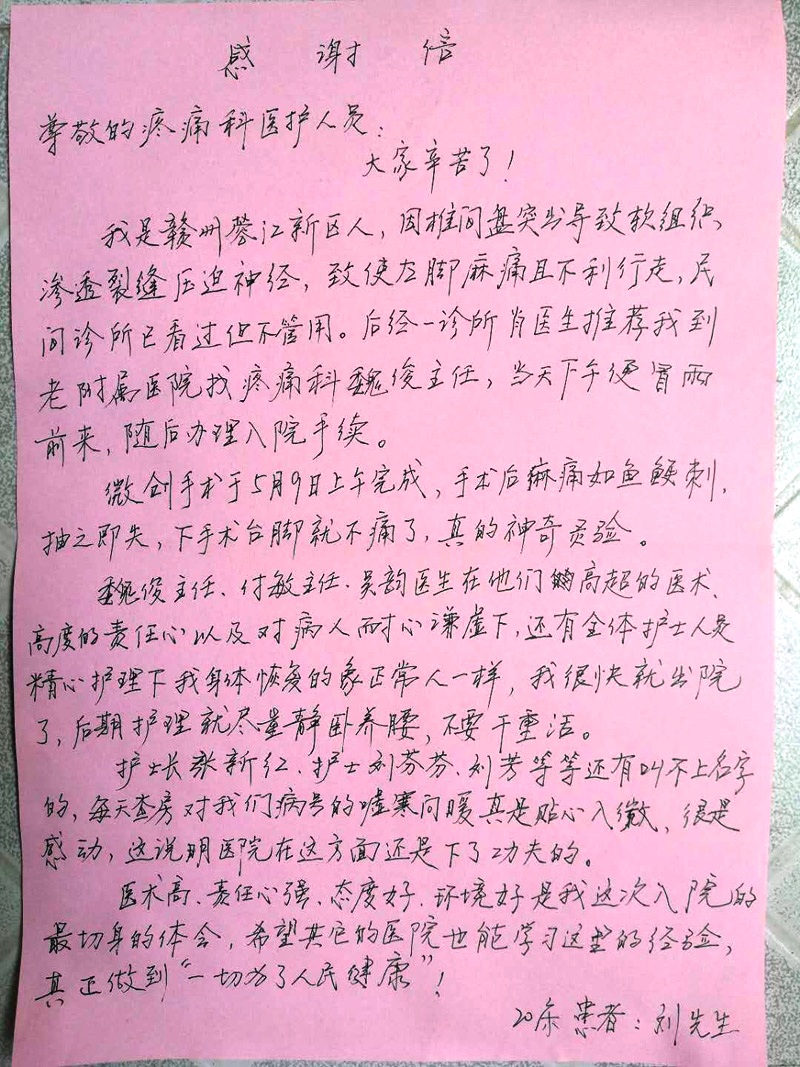 感谢信
尊敬的疼痛科医护人员：
大家辛苦了！
我是赣州蓉江新区人，因椎间盘突出导致软组织
渗透裂缝压迫神经，致使左脚麻痛且不利行走，民
间诊所已看过但不管用。后经一诊所肖医生推荐我到
老附属医院找疼痛科魏俊主任，当天下午便冒雨
前来，随后办理入院手续。
微创手术于5月9日上午完成，手术后麻痛如鱼鲠刺，
抽之即失，下手术台脚就不痛了，真的神奇灵验。
魏俊主任、付敏主任、吴韵医生在他们高超的医术、
高度的责任心以及对病人耐心谦虚下，还有全体护士人员
精心护理下我身体恢复的象正常人一样，我很快就出院
了，后期护理就尽量静卧养腰，不要干重活。
护士长张新红、护士刘芬芬、刘芳等等还有叫不上名字
的，每天查房对我们病号的嘘寒问暖真是贴心入微，很是
感动，这说明医院在这方面还是下了功夫的。
医术高、责任心强、态度好、环境好是我这次入院的
最切身的体会，希望其它的医院也能学习这里的经验，
真正做到“一切为了人民健康”！
20床患者：刘先生